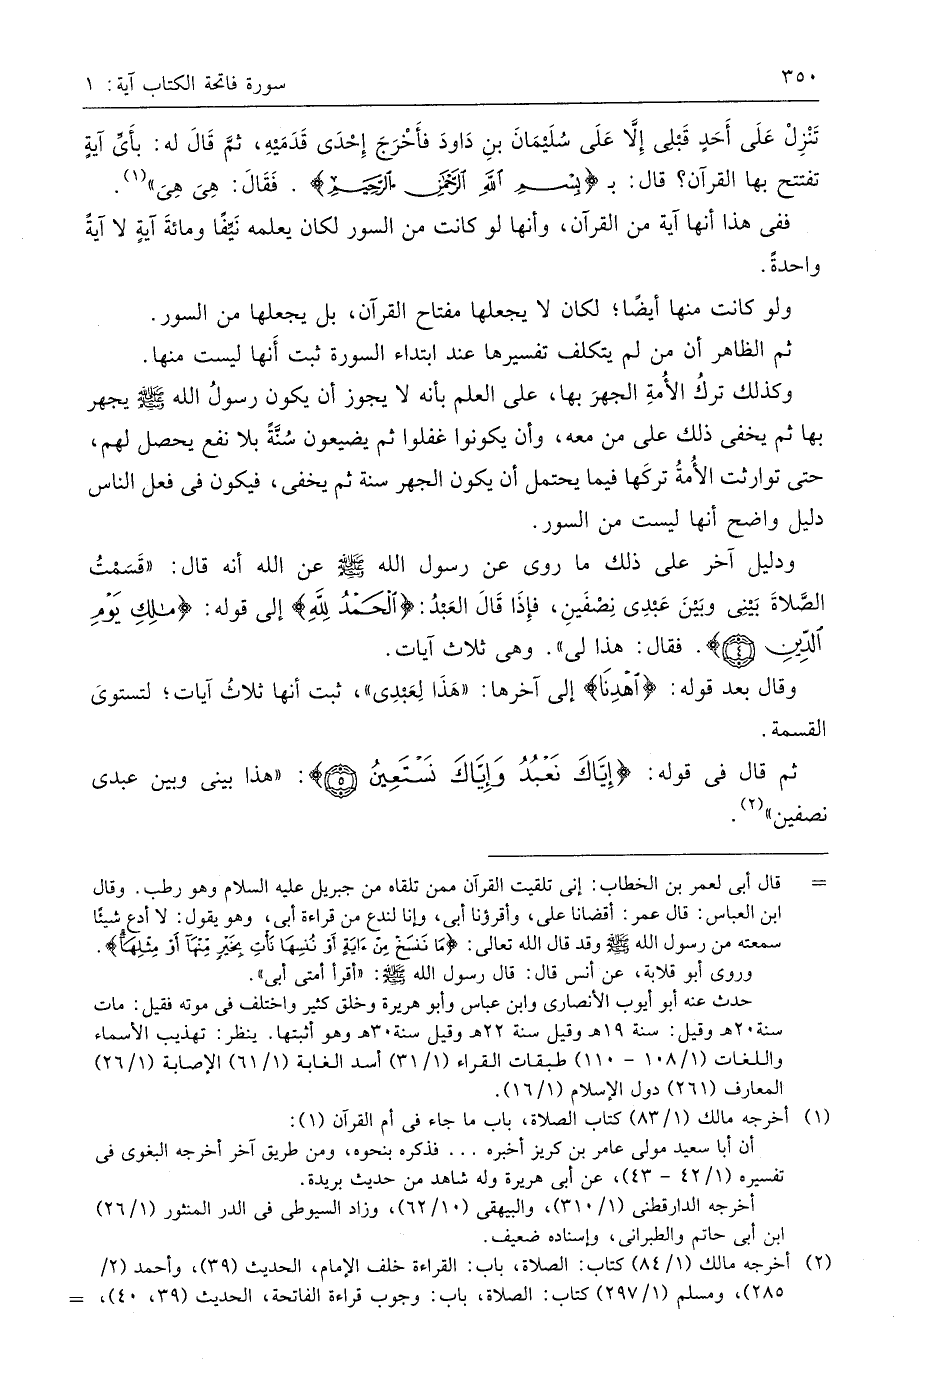 ٣٥٠
سورة فاتحة الكتاب آية: ١
تَنْزِلْ عَلَى أَحَدٍ قَبْلِى إِلَّا عَلَى سُلَيْمَانَ بنِ دَاودَ فأَخْرَجَ إِحْدَى قَدَمَيْهِ، ثمَّ قَالَ له: بأَىِّ آيةٍ
تفتتح بها القرآن؟ قال: بـ ﴿بِسْمِ اللَّهِ الرَّحْمَٰنِ الرَّحِيمِ﴾ . فَقَالَ: هِىَ هِىَ»(١).
ففى هذا أنها آية من القرآن، وأنها لو كانت من السور لكان يعلمه نَيِّفًا ومائةَ آيةٍ لا آيةً
واحدةً.
ولو كانت منها أيضًا؛ لكان لا يجعلها مفتاح القرآن، بل يجعلها من السور.
ثم الظاهر أن من لم يتكلف تفسيرها عند ابتداء السورة ثبت أَنها ليست منها.
وكذلك تركُ الأُمةِ الجهرَ بها، على العلم بأنه لا يجوز أن يكون رسولُ الله ﷺ يجهر
بها ثم يخفى ذلك على من معه، وأن يكونوا غفلوا ثم يضيعون سُنَّةً بلا نفع يحصل لهم،
حتى توارثت الأُمةُ تركَها فيما يحتمل أن يكون الجهر سنة ثم يخفى، فيكون فى فعل الناس
دليل واضح أنها ليست من السور.
ودليل آخر على ذلك ما روى عن رسول الله ﷺ عن الله أنه قال: «قَسَمْتُ
الصَّلاةَ بَيْنِى وبَيْنَ عَبْدِى نِصْفَينِ، فإِذَا قَالَ العَبْدُ: ﴿ٱلْحَمْدُ لِلَّهِ﴾ إلى قوله: ﴿مَٰلِكِ يَوْمِ
ٱلدِّينِ ٤﴾. فقال: هذا لى». وهى ثلاث آيات.
وقال بعد قوله: ﴿ٱهْدِنَا﴾ إلى آخرها: «هَذَا لِعَبْدِى»، ثبت أنها ثلاثُ آيات؛ لتستوىَ
القسمة.
ثم قال فى قوله: ﴿إِيَّاكَ نَعْبُدُ وَإِيَّاكَ نَسْتَعِينُ ٥﴾: «هذا بينى وبين عبدى
نصفين»(٢).
= قال أبى لعمر بن الخطاب: إنى تلقيت القرآن ممن تلقاه من جبريل عليه السلام وهو رطب. وقال
ابن العباس: قال عمر: أقضانا على، وأقرؤنا أبى، وإنا لندع من قراءة أبى، وهو يقول: لا أدع شيئًا
سمعته من رسول الله ﷺ وقد قال الله تعالى: ﴿مَا نَنسَخْ مِنْ ءَايَةٍ أَوْ نُنسِهَا نَأْتِ بِخَيْرٍ مِّنْهَآ أَوْ مِثْلِهَآ﴾.
وروى أبو قلابة، عن أنس قال: قال رسول الله ﷺ: «أقرأ أمتى أبى».
حدث عنه أبو أيوب الأنصارى وابن عباس وأبو هريرة وخلق كثير واختلف فى موته فقيل: مات
سنة٢٠هـ وقيل: سنة ١٩هـ وقيل سنة ٢٢هـ وقيل سنة٣٠هـ وهو أثبتها. ينظر: تهذيب الأسماء
واللغات (١٠٨/١ - ١١٠) طبقات القراء (٣١/١) أسد الغابة (٦١/١) الإصابة (٢٦/١)
المعارف (٢٦١) دول الإسلام (١٦/١).
(١) أخرجه مالك (٨٣/١) كتاب الصلاة، باب ما جاء فى أم القرآن (١):
أن أبا سعيد مولى عامر بن كريز أخبره ... فذكره بنحوه، ومن طريق آخر أخرجه البغوى فى
تفسيره (٤٢/١ - ٤٣)، عن أبى هريرة وله شاهد من حديث بريدة.
أخرجه الدارقطنى (٣١٠/١)، والبيهقى (٦٢/١٠)، وزاد السيوطى فى الدر المنثور (٢٦/١)
ابن أبى حاتم والطبرانى، وإسناده ضعيف.
(٢) أخرجه مالك (٨٤/١) كتاب: الصلاة، باب: القراءة خلف الإمام، الحديث (٣٩)، وأحمد (٢/
٢٨٥)، ومسلم (٢٩٧/١) كتاب: الصلاة، باب: وجوب قراءة الفاتحة، الحديث (٣٩، ٤٠)، =